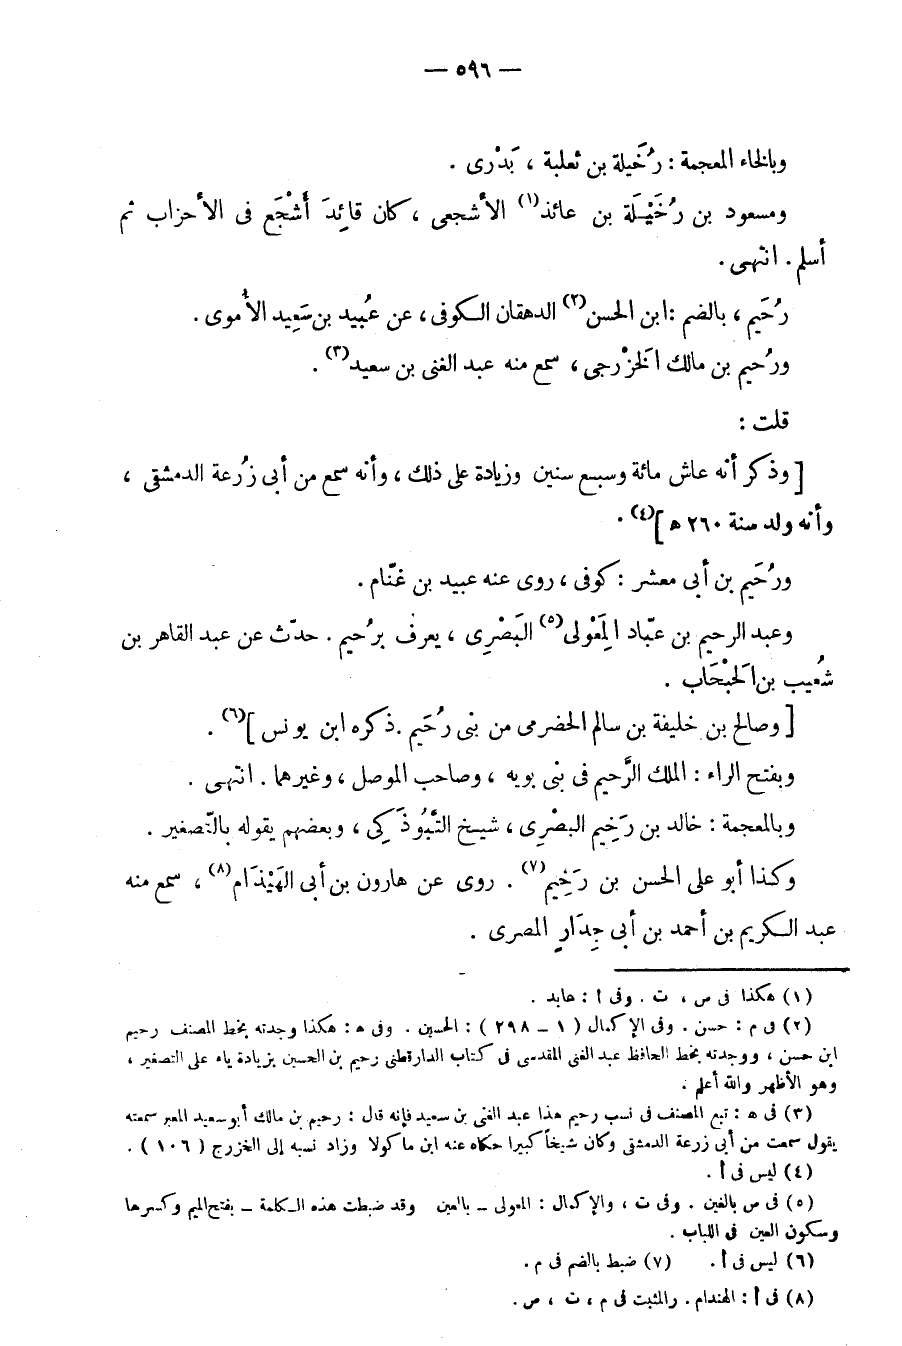 — ٥٩٦ —
وبالخاء المعجمة : رُخَيلة بن ثعلبة ، بَدْرى .
ومسعود بن رُخَيْلَة بن عائذ(١) الأشجعى ، كان قائِدَ أَشْجَع فى الأحزاب ثم
أسلم . انتهى .
رُحَيم ، بالضم : ابن الحسن(٢) الدهقان الكوفى ، عن عُبيد بن سَعِيد الأُموى .
ورُحيم بن مالك الخزْرجى ، سمع منه عبد الغنى بن سعيد(٣) .
قلت :
[ وذكر أنه عاش مائة وسبع سنين وزيادة على ذلك ، وأنه سمع من أبى زُرعة الدمشقى ،
وأنه ولد سنة ٢٦٠ هـ ](٤) .
ورُحَيم بن أبى معشر : كوفى ، روى عنه عبيد بن غنّام .
وعبد الرحيم بن عبّاد المَِعْولى(٥) البَصْرِى ، يعرف برُحيم . حدّث عن عبد القاهر بن
شُعيب بن الحَبْحَاب .
[ وصالح بن خليفة بن سالم الحضرمى من بنى رُحَيم . ذكره ابن يونس ](٦) .
وبفتح الراء : الملك الرَّحيم فى بنى بويه ، وصاحب الموصل ، وغيرهما . انتهى .
وبالمعجمة : خالد بن رَخِيم البصْرِى ، شيخ التَّبُوذَكِى ، وبعضهم يقوله بالتّصغير .
وكذا أبو على الحسن بن رَخِيم(٧) . روى عن هارون بن أبى الهَيْذَام(٨) ، سمع منه
عبد الكريم بن أحمد بن أبى جِدَارٍ المصرى .
(١) هكذا فى ص ، ت . وفى أ : عابد .
(٢) فى م : حسن . وفى الإكمال ( ١ – ٢٩٨ ) : الحسين . وفى هـ : هكذا وجدته بخط المصنف رحيم
ابن حسن ، ووجدته بخط الحافظ عبد الغنى المقدسى فى كتاب الدارقطنى رحيم بن الحسين بزيادة ياء على التصغير ،
وهو الأظهر والله أعلم .
(٣) فى هـ : تبع المصنف فى نسب رحيم هذا عبد الغنى بن سعيد فإنه قال : رحيم بن مالك أبو سعيد المعبر سمعته
يقول سمعت من أبى زرعة الدمشقى وكان شيخاً كبيرا حكاه عنه ابن ماكولا وزاد نسبه إلى الخزرج ( ١٠٦ ) .
(٤) ليس فى أ .
(٥) فى ص بالغين . وفى ت ، والإكمال : المعولى – بالعين وقد ضبطت هذه الكلمة – بفتح الميم وكسرها
وسكون العين فى اللباب .
(٦) ليس فى أ . (٧) ضبط بالضم فى م .
(٨) فى أ : الهندام . والمثبت فى م ، ت ، ص .